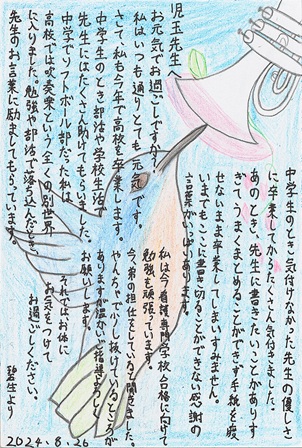 児玉先生へ
お元気でお過ごしですか?
私はいつも通りとても元気です。
さて、私も今年で高校を卒業します。
中学生のとき部活や学校生活で
先生にはたくさん助けてもらいました。
中学でソフトボール部だった私は、
高校では吹奏楽という全くの別世界
に入りました。勉強や部活で落ち込んだとき、
先生のお言葉に励ましてもらっています。
中学生のとき気付けなかった先生の優しさ
に卒業してからたくさん気付きました。
あのとき、先生に書きたいことがありす
ぎてうまくまとめることができず手紙を渡
せないまま卒業してしまいすみません。
いまでもここに書き切ることができない感謝の
言葉がいっぱいあります。
私は今看護専門学校合格に向けて
勉強を頑張っています。
今、弟の担任をしていると聞きました。
やんちゃで少し抜けているところが
ありますが温かいご指導よろしく
お願いします。
それではお体に
お気をつけて
お過ごしください。
碧生より
2024.8.26